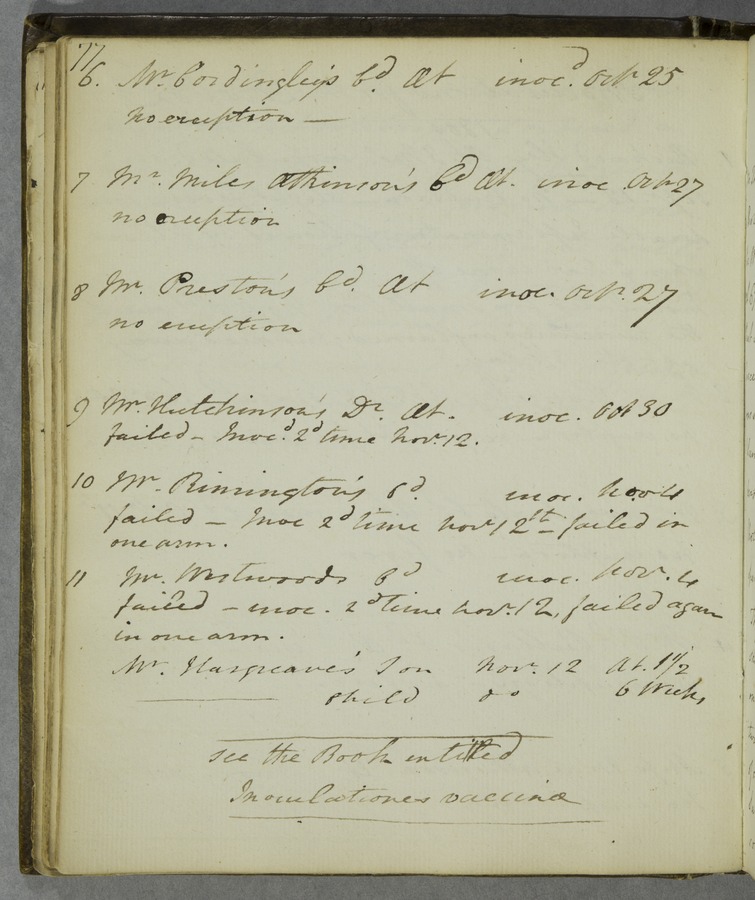 77
6. Mr. Cordingley's Cd. Æt inocd. Octr. 25
No eruption —
7 Mr. Miles Atkinson's Cd Æt. inoc Octr 27
no eruption
8 Mr. Preston's Cd. Æt inoc. Octr. 27
no eruption
9 Mr. Hutchinson's Dr. Æt. inoc. Oct 30
failed – Inocd. 2d time Novr. 12.
10 Mr. Rimington's Cd. inoc. Nov 4
failed – Inoc 2d time Novr 12th – failed in
one arm.
11 Mr. Westwoods Cd inoc. Novr. 4
failed – inoc. 2d time Novr. 12, failed again
in one arm.
Mr. Hargreave's Son Novr. 12 Æt. 1 1/2
——— Child do 6 Weeks
see the Book entitled
Inoculationes vaccinæ